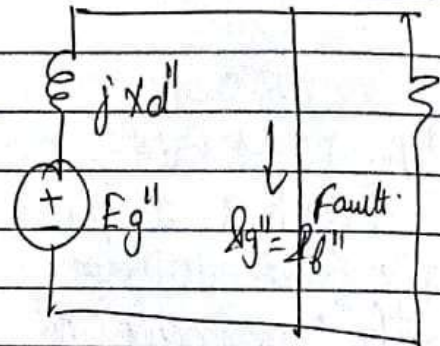 j Xd"
+
-
Eg"
Ig" = If"
Fault.